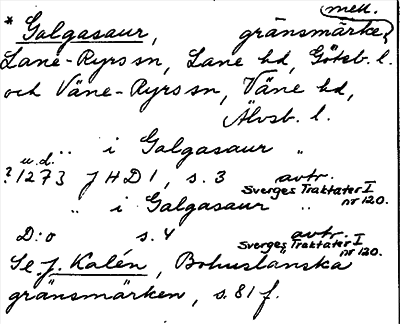 mell.
* Galgasaur, gränsmärke,
Lane-Ryrs sn, Lane hd, Göteb. l.
och Väne-Ryrs sn, Väne hd,
Älvsb. l.
" i Galgasaur "
u.d.
? 1273 JHD 1, s. 3 avtr.
Sverges Traktater I
nr 120.
" i Galgasaur "
D:o s. 4 avtr.
Sverges Traktater I
nr 120.
Se J. Kalén, Bohuslänska
gränsmärken, s. 81 f.